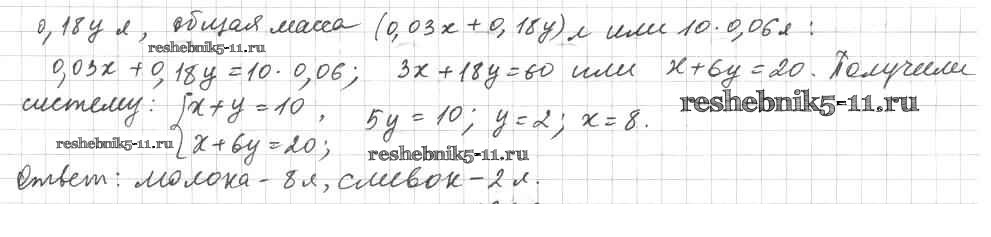 0,18y л, общая масса (0,03x + 0,18y) л или 10·0,06л:
reshebnik5-11.ru
0,03x + 0,18y = 10·0,06; 3x + 18y = 60 или x + 6y = 20. Получили
reshebnik5-11.ru
систему: { x + y = 10, 5y = 10; y = 2; x = 8.
reshebnik5-11.ru x + 6y = 20;
reshebnik5-11.ru
Ответ: молока - 8 л, сливок - 2 л.